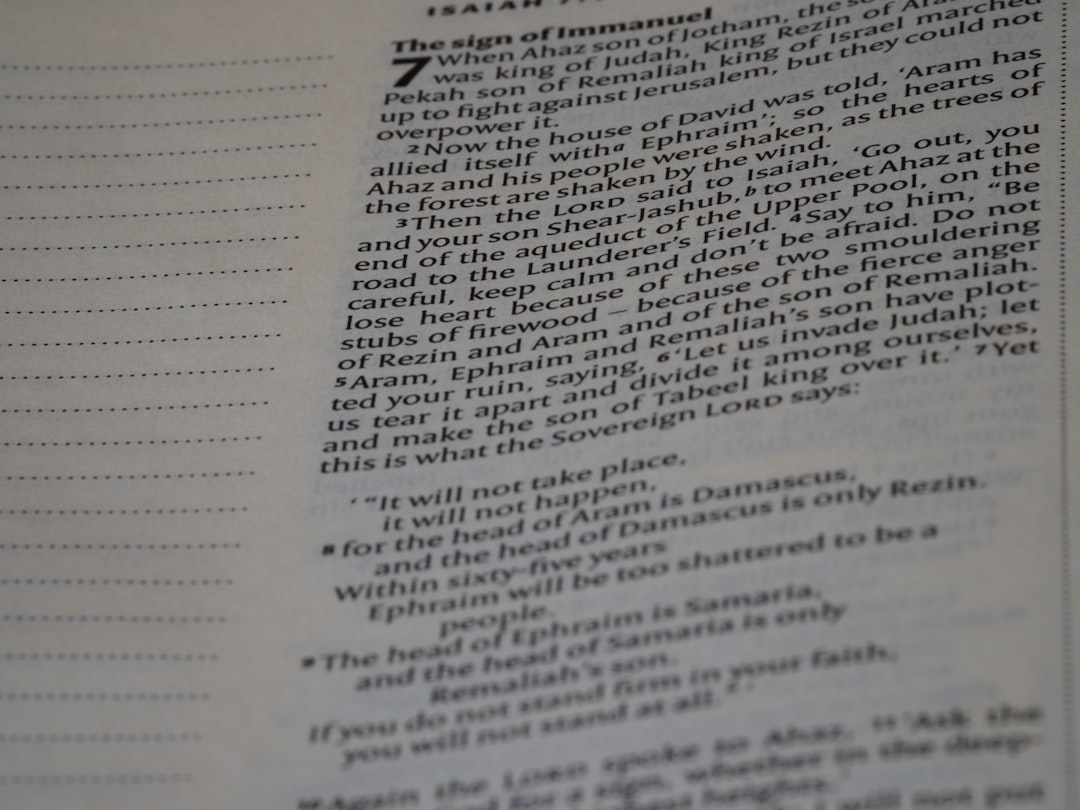 ISAIAH 7
The sign of Immanuel
7 When Ahaz son of Jotham, the so
was king of Judah, King Rezin of Aram
Pekah son of Remaliah king of Israel marched
up to fight against Jerusalem, but they could not
overpower it.
2 Now the house of David was told, ‘Aram has
allied itself witha Ephraim’; so the hearts of
Ahaz and his people were shaken, as the trees of
the forest are shaken by the wind.
3 Then the LORD said to Isaiah, ‘Go out, you
and your son Shear-Jashub,b to meet Ahaz at the
end of the aqueduct of the Upper Pool, on the
road to the Launderer’s Field. 4 Say to him, “Be
careful, keep calm and don’t be afraid. Do not
lose heart because of these two smouldering
stubs of firewood – because of the fierce anger
of Rezin and Aram and of the son of Remaliah.
5 Aram, Ephraim and Remaliah’s son have plot-
ted your ruin, saying, 6 ‘Let us invade Judah; let
us tear it apart and divide it among ourselves,
and make the son of Tabeel king over it.’ 7 Yet
this is what the Sovereign LORD says:
‘ “It will not take place,
it will not happen,
8 for the head of Aram is Damascus,
and the head of Damascus is only Rezin.
Within sixty-five years
Ephraim will be too shattered to be a
people.
9 The head of Ephraim is Samaria,
and the head of Samaria is only
Remaliah’s son.
If you do not stand firm in your faith,
you will not stand at all.” ’
10 Again the LORD spoke to Ahaz, 11 ‘Ask the
for a sign, whether in the deep-
heights.’